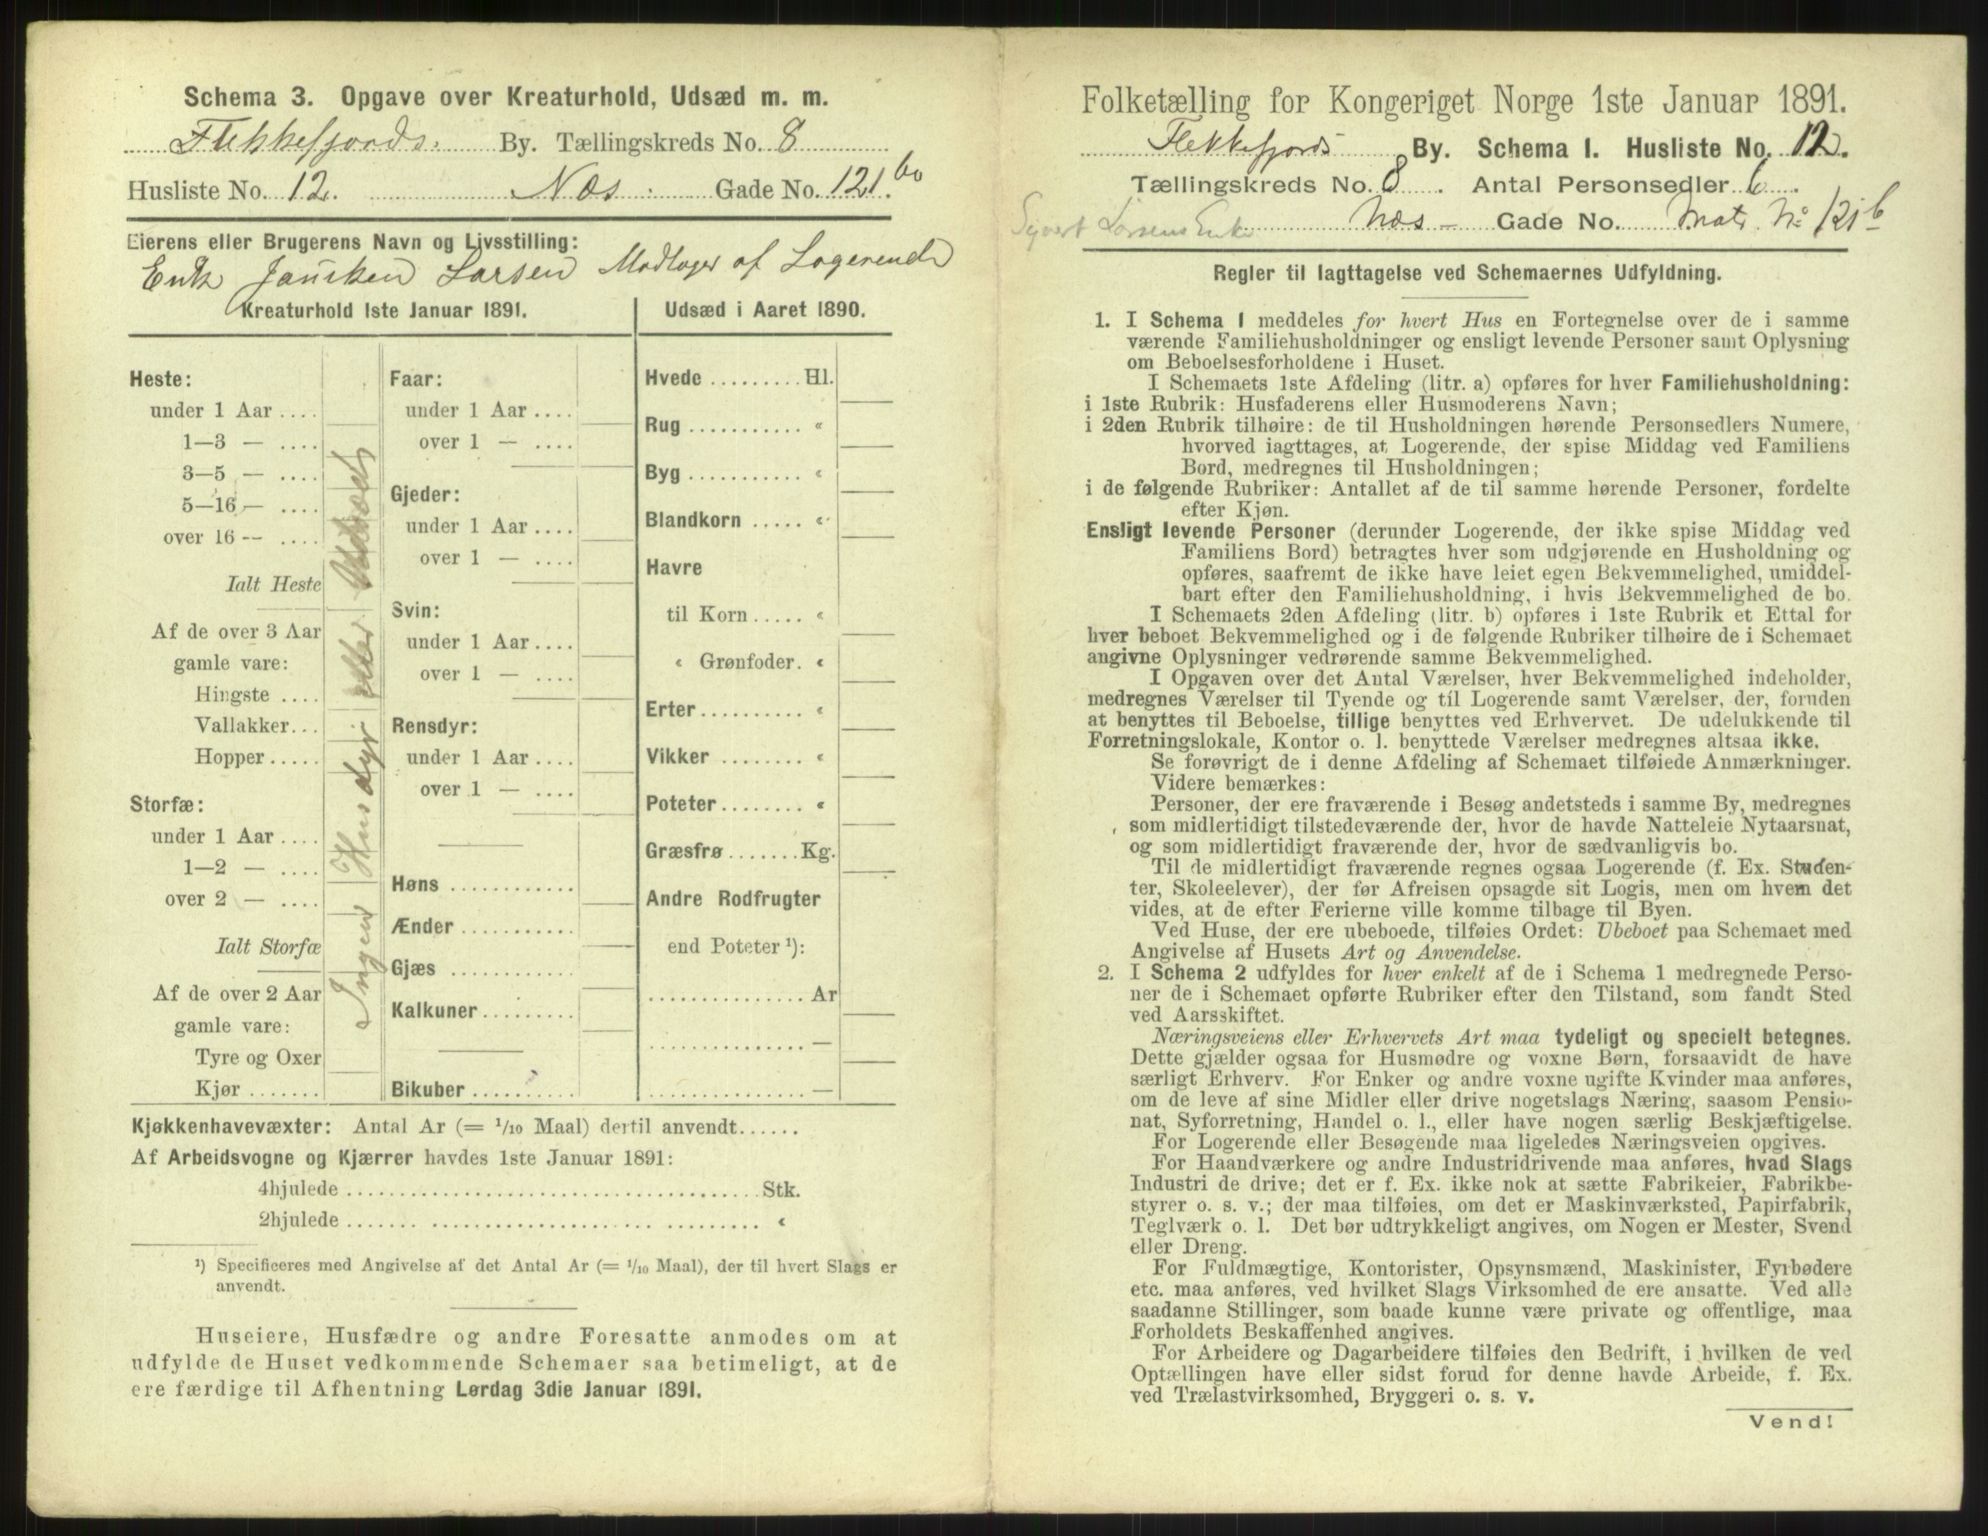 Schema 3. Opgave over Kreaturhold, Udsæd m. m.
Flekkefjords By. Tællingskreds No. 8
Husliste No. 12. Næs Gade No. 121 b
Eierens eller Brugerens Navn og Livsstilling:
Enke Larsen Modtager af Logerende
Kreaturhold 1ste Januar 1891.
Heste:
under 1 Aar ....
1—3 — ....
3—5 — ....
5—16 — ....
over 16 — ....
Ialt Heste
Af de over 3 Aar
gamle vare:
Hingste ....
Vallakker...
Hopper.....
Storfæ:
under 1 Aar ....
1—2 — ....
over 2 — ....
Ialt Storfæ
Af de over 2 Aar
gamle vare:
Tyre og Oxer
Kjør .......
Ingen Husdyr eller Udsæd
Faar:
under 1 Aar ....
over 1 — ....
Gjeder:
under 1 Aar ....
over 1 — ....
Svin:
under 1 Aar ....
over 1 — ....
Rensdyr:
under 1 Aar ....
over 1 — ....
Høns ............
Ænder ...........
Gjæs ............
Kalkuner .........
Bikuber ..........
Udsæd i Aaret 1890.
Hvede ......... Hl.
Rug ........... «
Byg ........... «
Blandkorn ..... «
Havre
til Korn ..... «
« Grønfoder. «
Erter.......... «
Vikker ........ «
Poteter ........ «
Græsfrø ....... Kg.
Andre Rodfrugter
end Poteter ¹):
............... Ar
............... —
............... —
Kjøkkenhavevæxter: Antal Ar (= 1/10 Maal) dertil anvendt......
Af Arbeidsvogne og Kjærrer havdes 1ste Januar 1891:
4hjulede ....................................... Stk.
2hjulede ....... ..................... ......... «
¹) Specificeres med Angivelse af det Antal Ar (= 1/10 Maal), der til hvert Slags er
anvendt.
Huseiere, Husfædre og andre Foresatte anmodes om at
udfylde de Huset vedkommende Schemaer saa betimeligt, at de
ere færdige til Afhentning Lørdag 3die Januar 1891.
Folketælling for Kongeriget Norge 1ste Januar 1891.
Flekkefjords By. Schema I. Husliste No. 12.
Tællingskreds No. 8. Antal Personsedler 6.
Syvert Larsens Enke Næs — Gade No. Mat. No 121 b
Regler til Iagttagelse ved Schemaernes Udfyldning.
1. I Schema 1 meddeles for hvert Hus en Fortegnelse over de i samme
værende Familiehusholdninger og ensligt levende Personer samt Oplysning
om Beboelsesforholdene i Huset.
I Schemaets 1ste Afdeling (litr. a) opføres for hver Familiehusholdning:
i 1ste Rubrik: Husfaderens eller Husmoderens Navn;
i 2den Rubrik tilhøire: de til Husholdningen hørende Personsedlers Numere,
hvorved iagttages, at Logerende, der spise Middag ved Familiens
Bord, medregnes til Husholdningen;
i de følgende Rubriker: Antallet af de til samme hørende Personer, fordelte
efter Kjøn.
Ensligt levende Personer (derunder Logerende, der ikke spise Middag ved
Familiens Bord) betragtes hver som udgjørende en Husholdning og
opføres, saafremt de ikke have leiet egen Bekvemmelighed, umiddel-
bart efter den Familiehusholdning, i hvis Bekvemmelighed de bo.
I Schemaets 2den Afdeling (litr. b) opføres i 1ste Rubrik et Ettal for
hver beboet Bekvemmelighed og i de følgende Rubriker tilhøire de i Schemaet
angivne Oplysninger vedrørende samme Bekvemmelighed.
I Opgaven over det Antal Værelser, hver Bekvemmelighed indeholder,
medregnes Værelser til Tyende og til Logerende samt Værelser, der, foruden
at benyttes til Beboelse, tillige benyttes ved Erhvervet. De udelukkende til
Forretningslokale, Kontor o. l. benyttede Værelser medregnes altsaa ikke.
Se forøvrigt de i denne Afdeling af Schemaet tilføiede Anmærkninger.
Videre bemærkes:
Personer, der ere fraværende i Besøg andetsteds i samme By, medregnes
som midlertidigt tilstedeværende der, hvor de havde Natteleie Nytaarsnat,
og som midlertidigt fraværende der, hvor de sædvanligvis bo.
Til de midlertidigt fraværende regnes ogsaa Logerende (f. Ex. Studen-
ter, Skoleelever), der før Afreisen opsagde sit Logis, men om hvem det
vides, at de efter Ferierne ville komme tilbage til Byen.
Ved Huse, der ere ubeboede, tilføies Ordet: Ubeboet paa Schemaet med
Angivelse af Husets Art og Anvendelse.
2. I Schema 2 udfyldes for hver enkelt af de i Schema 1 medregnede Perso-
ner de i Schemaet opførte Rubriker efter den Tilstand, som fandt Sted
ved Aarsskiftet.
Næringsveiens eller Erhvervets Art maa tydeligt og specielt betegnes.
Dette gjælder ogsaa for Husmødre og voxne Børn, forsaavidt de have
særligt Erhverv. For Enker og andre voxne ugifte Kvinder maa anføres,
om de leve af sine Midler eller drive nogetslags Næring, saasom Pensio-
nat, Syforretning, Handel o. l., eller have nogen særlig Beskjæftigelse.
For Logerende eller Besøgende maa ligeledes Næringsveien opgives.
For Haandværkere og andre Industridrivende maa anføres, hvad Slags
Industri de drive; det er f. Ex. ikke nok at sætte Fabrikeier, Fabrikbe-
styrer o. s. v.; der maa tilføies, om det er Maskinværksted, Papirfabrik,
Teglværk o. l. Det bør udtrykkeligt angives, om Nogen er Mester, Svend
eller Dreng.
For Fuldmægtige, Kontorister, Opsynsmænd, Maskinister, Fyrbødere
etc. maa anføres, ved hvilket Slags Virksomhed de ere ansatte. Ved alle
saadanne Stillinger, som baade kunne være private og offentlige, maa
Forholdets Beskaffenhed angives.
For Arbeidere og Dagarbeidere tilføies den Bedrift, i hvilken de ved
Optællingen have eller sidst forud for denne havde Arbeide, f. Ex.
ved Trælastvirksomhed, Bryggeri o. s. v.
Vend!